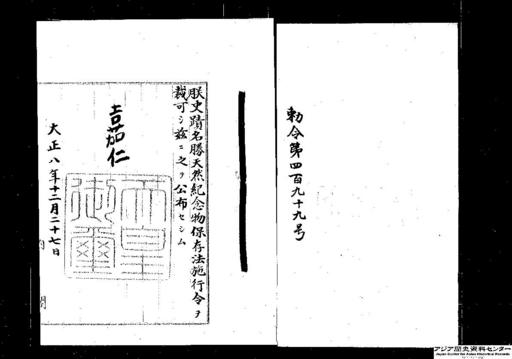 勅令第四百九十九号
朕史蹟名勝天然紀念物保存法施行令ヲ
裁可シ玆ニ之ヲ公布セシム
嘉仁
天皇
御璽
大正八年十二月二十七日
内
アジア歴史資料センター
Japan Center for Asian Historical Records